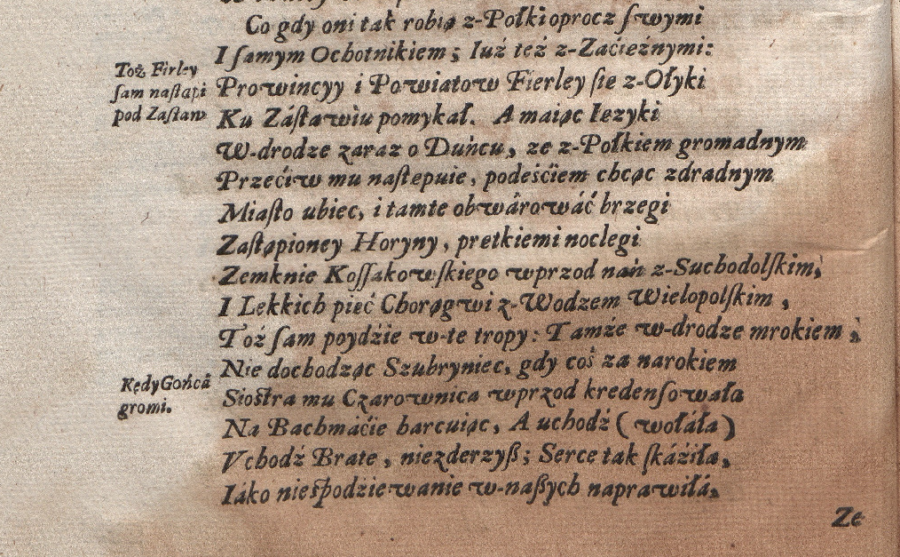 Co gdy oni tak robią z-Połki oprocz ſwymi
I ſamym Ochotnikiem; Iuż też z-Zaćieżnymi:
Toż Firley
ſam naſtąpi
pod Zaſław
Prowincyy i Powiatow Fierley ſie z-Ołyki
Ku Záſławiu pomykał. A maiąc Iezyki
W-drodze zaraz o Duńcu, ze z-Połkiem gromadnym
Przećiw mu naſtepuie, podeśćiem chcąc zdradnym
Miaſto ubiec, i tamte obwárowáć brzegi
Zaſtąpioney Horyny, pretkiemi noclegi
Zemknie Koſſakowſkiego wprzod nań z-Suchodolſkim,
I Lekkich pieć Chorągwi z-Wodzem Wielopolſkim,
Toż ſam poydźie w-te tropy: Tamże w-drodze mrokiem,
Nie dochodząc Szubryniec, gdy coś za narokiem
Kędy Gońcá
gromi.
Sioſtra mu Czarownica wprzod kredenſowała
Na Bachmáćie harcuiąc, A uchodź (wołáła)
Vchodź Brate, niezderzyß; Serce tak ſkáźiła,
Iáko nieſpodziewanie w-naßych naprawiłá,
Ze